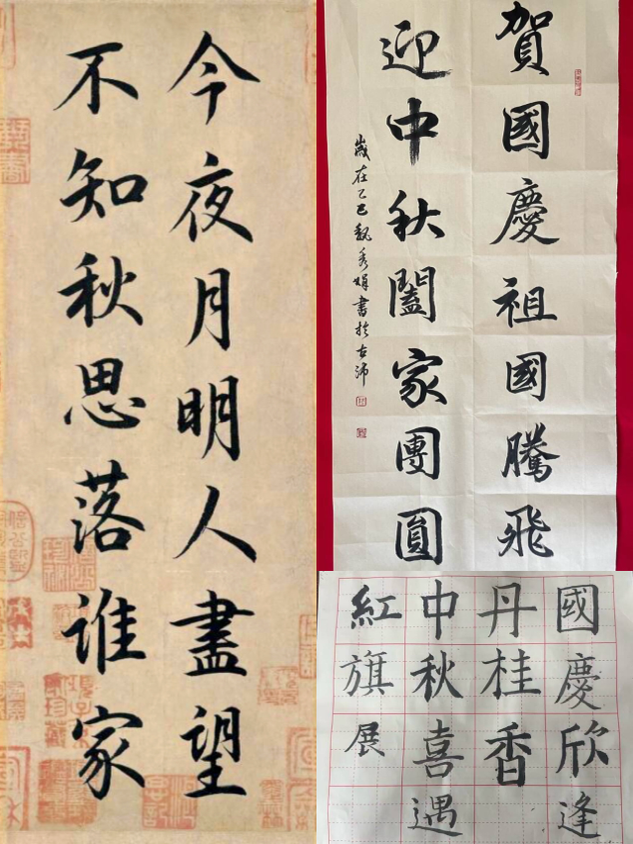 今夜月明人盡望
不知秋思落谁家
賀國慶祖國騰飛
迎中秋闔家團圓
歲在乙巳魏秀娟書於古沛
國慶欣逢
丹桂香
中秋喜遇
紅旗展